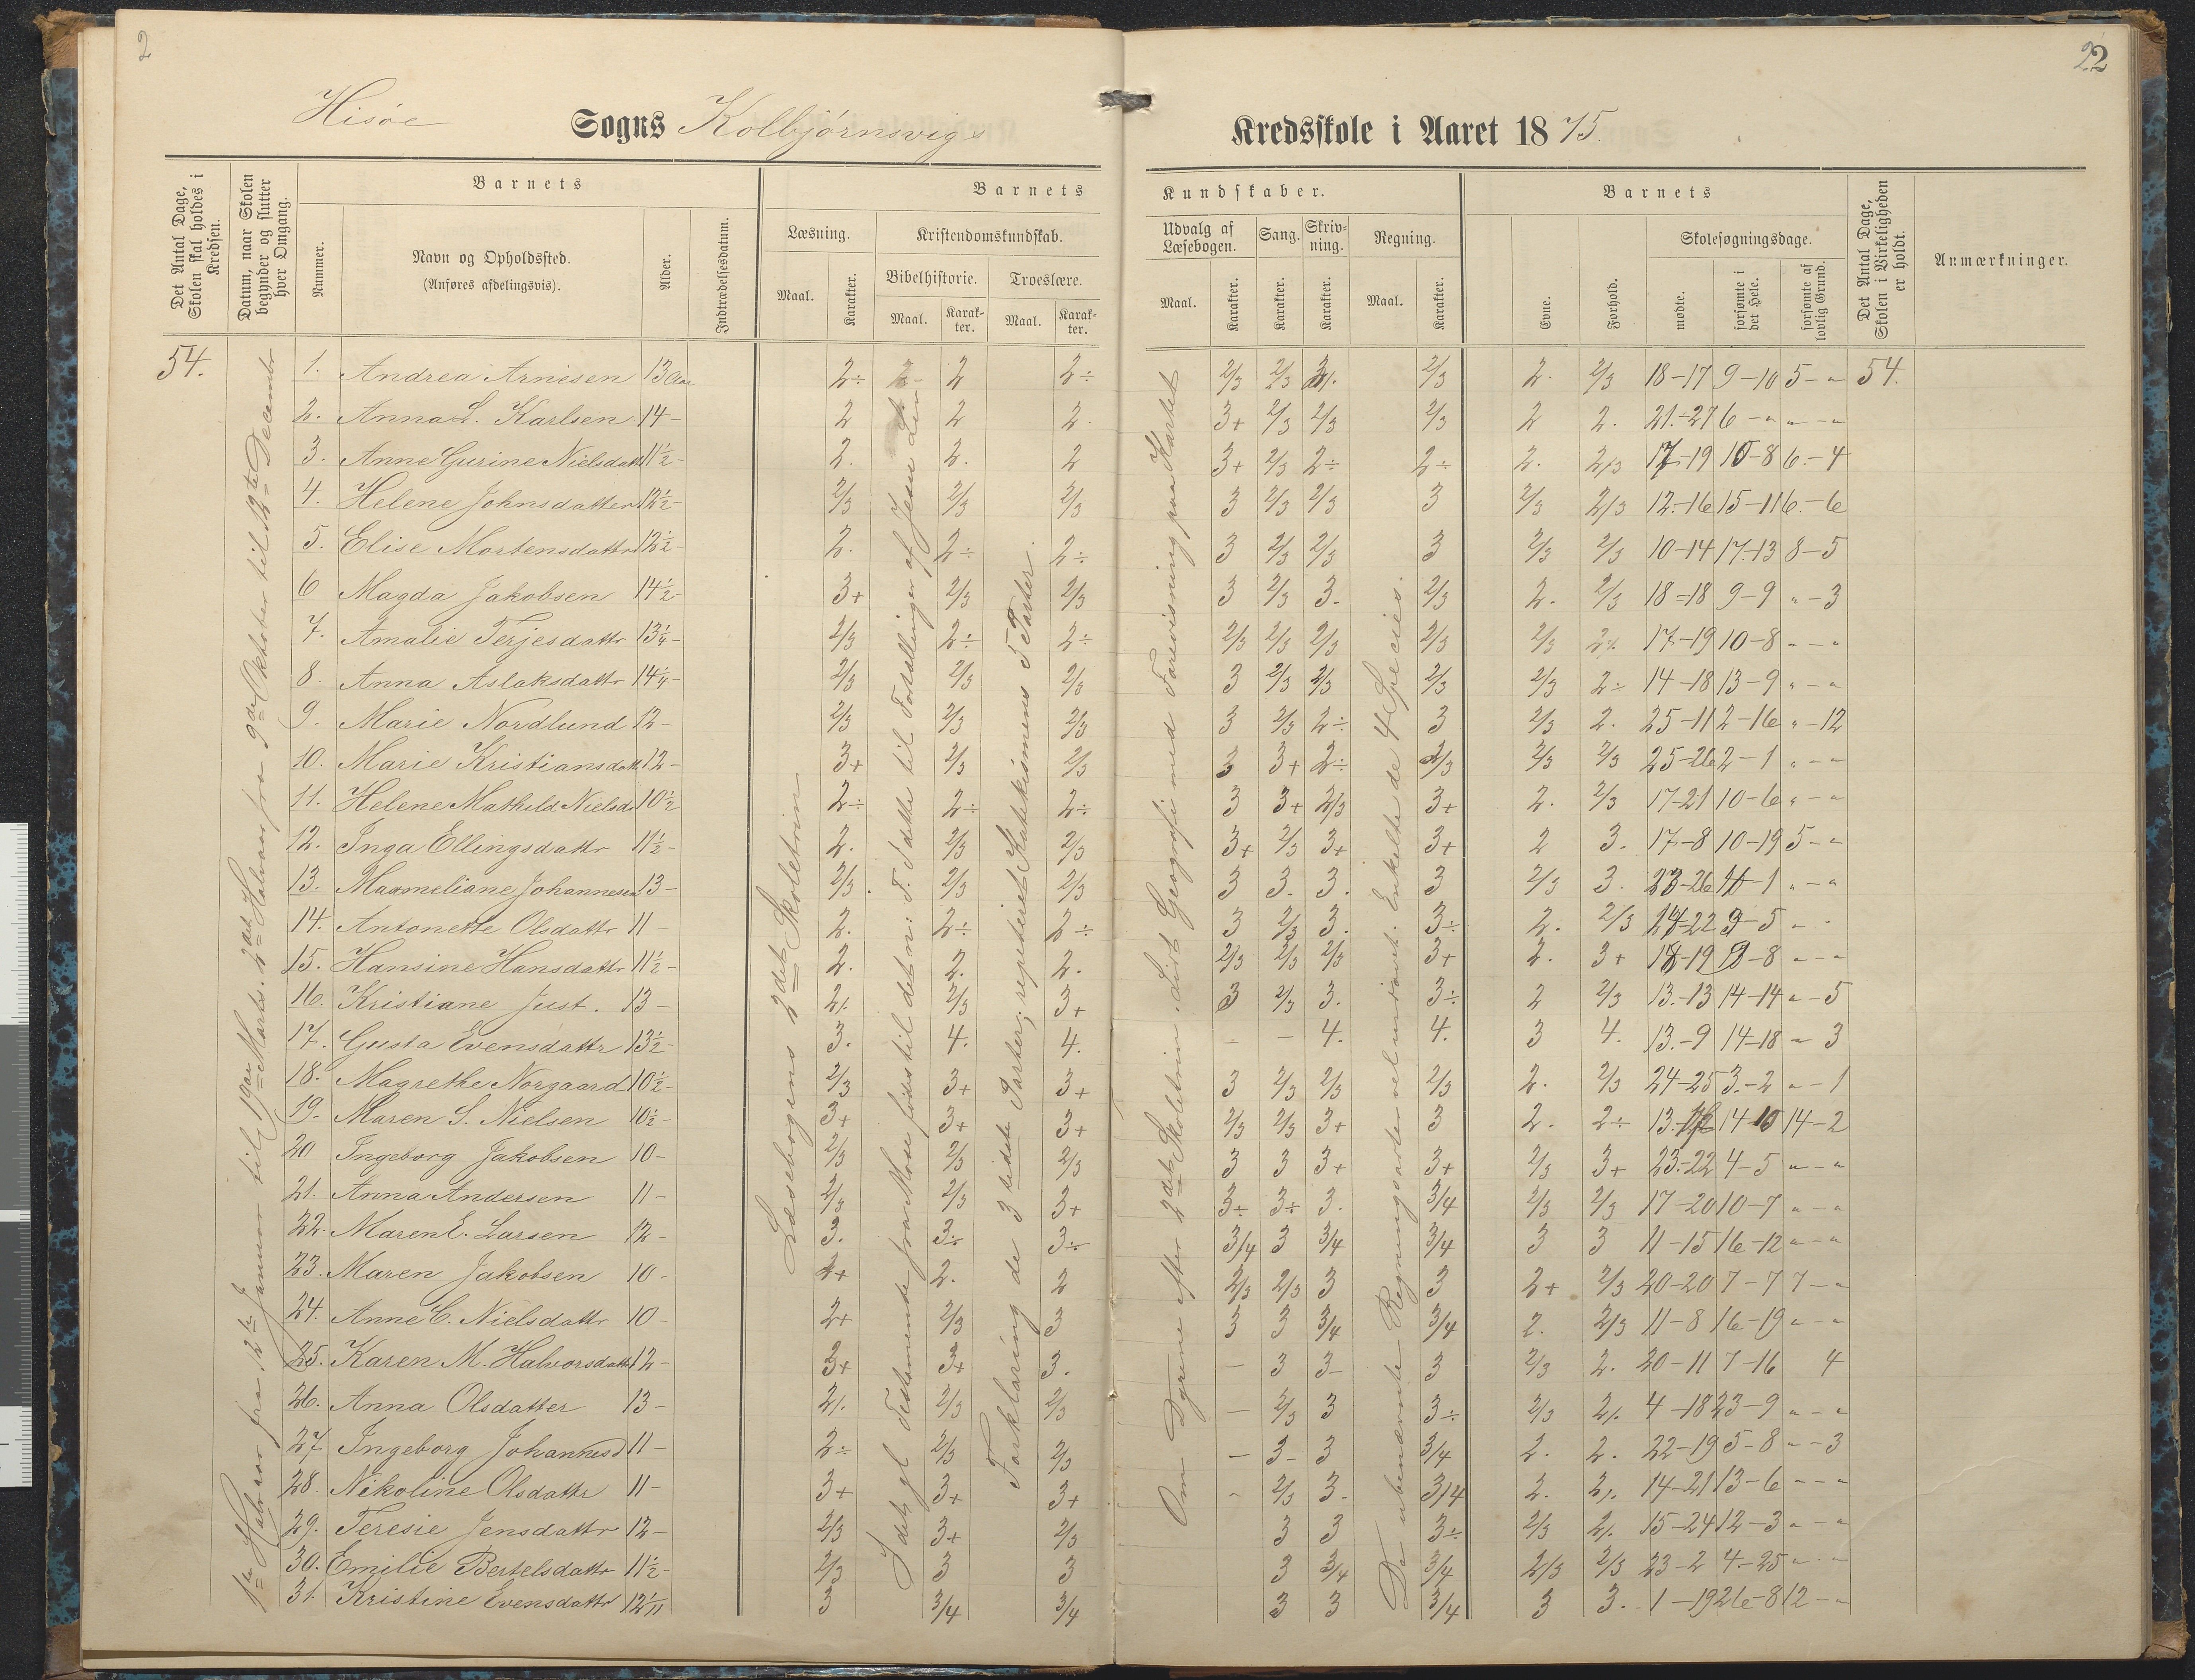 2
22
Hisöe Sogns Kolbjörnsvigs Kredsskole i Aaret 1875.
Det Antal Dage, Skolen skal holdes i Kredsen.
Datum, naar Skolen begynder og slutter hver Omgang.
Barnets
Nummer.
Navn og Opholdssted.
(Anføres afdelingsvis).
Alder.
Indtrædelsesdatum.
Barnets Kundskaber.
Læsning.
Maal.
Karakter.
Kristendomskundskab.
Bibelhistorie.
Maal.
Karakter.
Troeslære.
Maal.
Karakter.
Udvalg af Læsebogen.
Maal.
Karakter.
Sang.
Karakter.
Skrivning.
Karakter.
Regning.
Maal.
Karakter.
Barnets
Evne.
Forhold.
Skolesøgningsdage.
mødte.
forsømte i det Hele.
forsømte af lovlig Grund.
Det Antal Dage, Skolen i Virkeligheden er holdt.
Anmærkninger.
1ste Halvaar fra 12te Januar til 19de Marts. 2det Halvaar fra 9de Oktober til 12te Decembr
Læsebogens 2det Skoletrin
Forklaring de 3 sidste Parter; repeteret Katekismens 5 Parter.
Om Dyrene efter 2det Skoletrin. Lidt Geografi med Forevisning paa Kartet
De ubenævnte Regningsarter vel indövet. Enkelte de 4 Species.
54. 1. Andrea Arnesen 13 Aar 2÷ 2 2÷ 2/3 2/3 2/3 2. 2/3 18-17 9-10 5-" 54.
2. Anna L. Karlsen 14- 2 2 2. 3+ 2/3 2/3 2/3 2 2. 21-27 6-" "-"
3. Anne Gurine Nielsdatt 11½- 2. 2. 2 3+ 2/3 2÷ 2÷ 2. 2/3 17-19 10-8 6-4
4. Helene Johnsdatter 12½- 2/3 2/3 2/3 3 2/3 2/3 3 2/3 2/3 12-16 15-11 6-6
5. Elise Mortensdattr 12½- 2. 2÷ 2÷ 3 2/3 2/3 3 2/3 2/3 10-14 17-13 8-5
6 Magda Jakobsen 14½- 3+ 2/3 2/3 3 2/3 3. 2/3 2. 2/3 18-18 9-9 "-3
7. Amalie Terjesdattr 13¼- 2/3 2÷ 2÷ 2/3 2/3 2/3 2/3 2/3 2÷ 17-19 10-8 "-"
8. Anna Aslaksdattr 14¼- 2/3 2/3 2/3 3 2/3 2/3 2/3 2/3 2÷ 14-18 13-9 "-"
9. Marie Nordlund 12- 2/3 2/3 2/3 3 2/3 2÷ 3 2/3 2. 25-11 2-16 "-12
10. Marie Kristiansdatt 12- 3+ 2/3 2/3 3 3+ 2÷ 2/3 2/3 2/3 25-26 2-1 "-"
11. Helene Mathild Nielsd 10½ 2÷ 2÷ 2÷ 3 3+ 2/3 3+ 2. 2/3 17-21 10-6 "-"
12. Inga Ellingsdattr 11½- 2. 2/3 2/3 3+ 2/3 3+ 3+ 2 3. 17-8 10-19 5-"
13. Maxmeliane Johannesen 13- 2/3. 2/3 2/3 3 3. 3. 3 2/3 3. 23-26 4-1 "-"
14. Antonette Olsdattr 11- 2. 2÷ 2÷ 3 2/3 3. 3÷ 2. 2/3 9-5
15. Hansine Hansdattr 11½- 2. 2. 2. 2/3 2/3 2/3 3+ 2. 3+ 18-19 9-8 "-"
16. Kristiane Just. 13- 2/. 2/3 3+ 3 2/3 3. 3÷ 2 2/3 13-13 14-14 "-5
17. Gusta Evensdattr 13½- 3. 4. 4. - - 4. 4. 3 4. 13-9 14-18 " 3
18. Magrethe Norgaard 10½- 2/3 3+ 3+ 3 2/3 2/3 2/3 2. 2/3 24-25 3-2 "-1
19. Maren S. Nielsen 10½- 3+ 3+ 3+ 2/3 2/3 3+ 3 2. 2÷ 14-2
20 Ingeborg Jakobsen 10- 2/3 2/3 2/3 3 3 3+ 3+ 2/3 3+ 23-22 4-5 "-"
21. Anna Andersen 11- 2/3 2/3 3+ 3÷ 3÷ 3. 3/4 2/3 2/3 17-20 10-7 "-"
22. Maren E. Larsen 12- 3. 3÷ 3÷ 3/4 3 3/4 3/4 3 3 11-15 16-12 "-"
23. Maren Jakobsen 10- 2+ 2. 2 2/3 2/3 3 3 2+ 2/3 20-20 7-7 7-"
24. Anne C. Nielsdattr 10- 2+ 2/3 3 3 3 3/4 3/4 2. 2/3 11-8 16-19 "-"
25. Karen M. Halvorsdatt 12- 3+ 3+ 3. - 3 3- 3 2/3 2. 20-11 7-16 4
26. Anna Olsdatter 13- 2/. 2/3 2/3 - 2/3 3 3÷ 2/3 2/. 4-18 23-9 "-"
27. Ingeborg Johannesd 11- 2÷ 2/3 2/3 - 3- 3 3/4 2. 2. 22-19 5-8 "-3
28. Nikoline Olsdattr 11- 3+ 3+ 3+ - 2/3 3- 3/4 2. 2/. 14-21 13-6 "-"
29. Teresie Jensdattr 12- 2/3 3+ 2/3 3 3 3÷ 2/3 2/. 15-24 12-3 "-"
30. Emilie Bertelsdattr 11½- 2/3 3 3 3 3/4 3/4 2/3 2/3 23-2 4-25 "-"
31. Kristine Evensdattr 3 3/4 3/4 3 3 3/4 3 3. 1-19 26-8 12-"